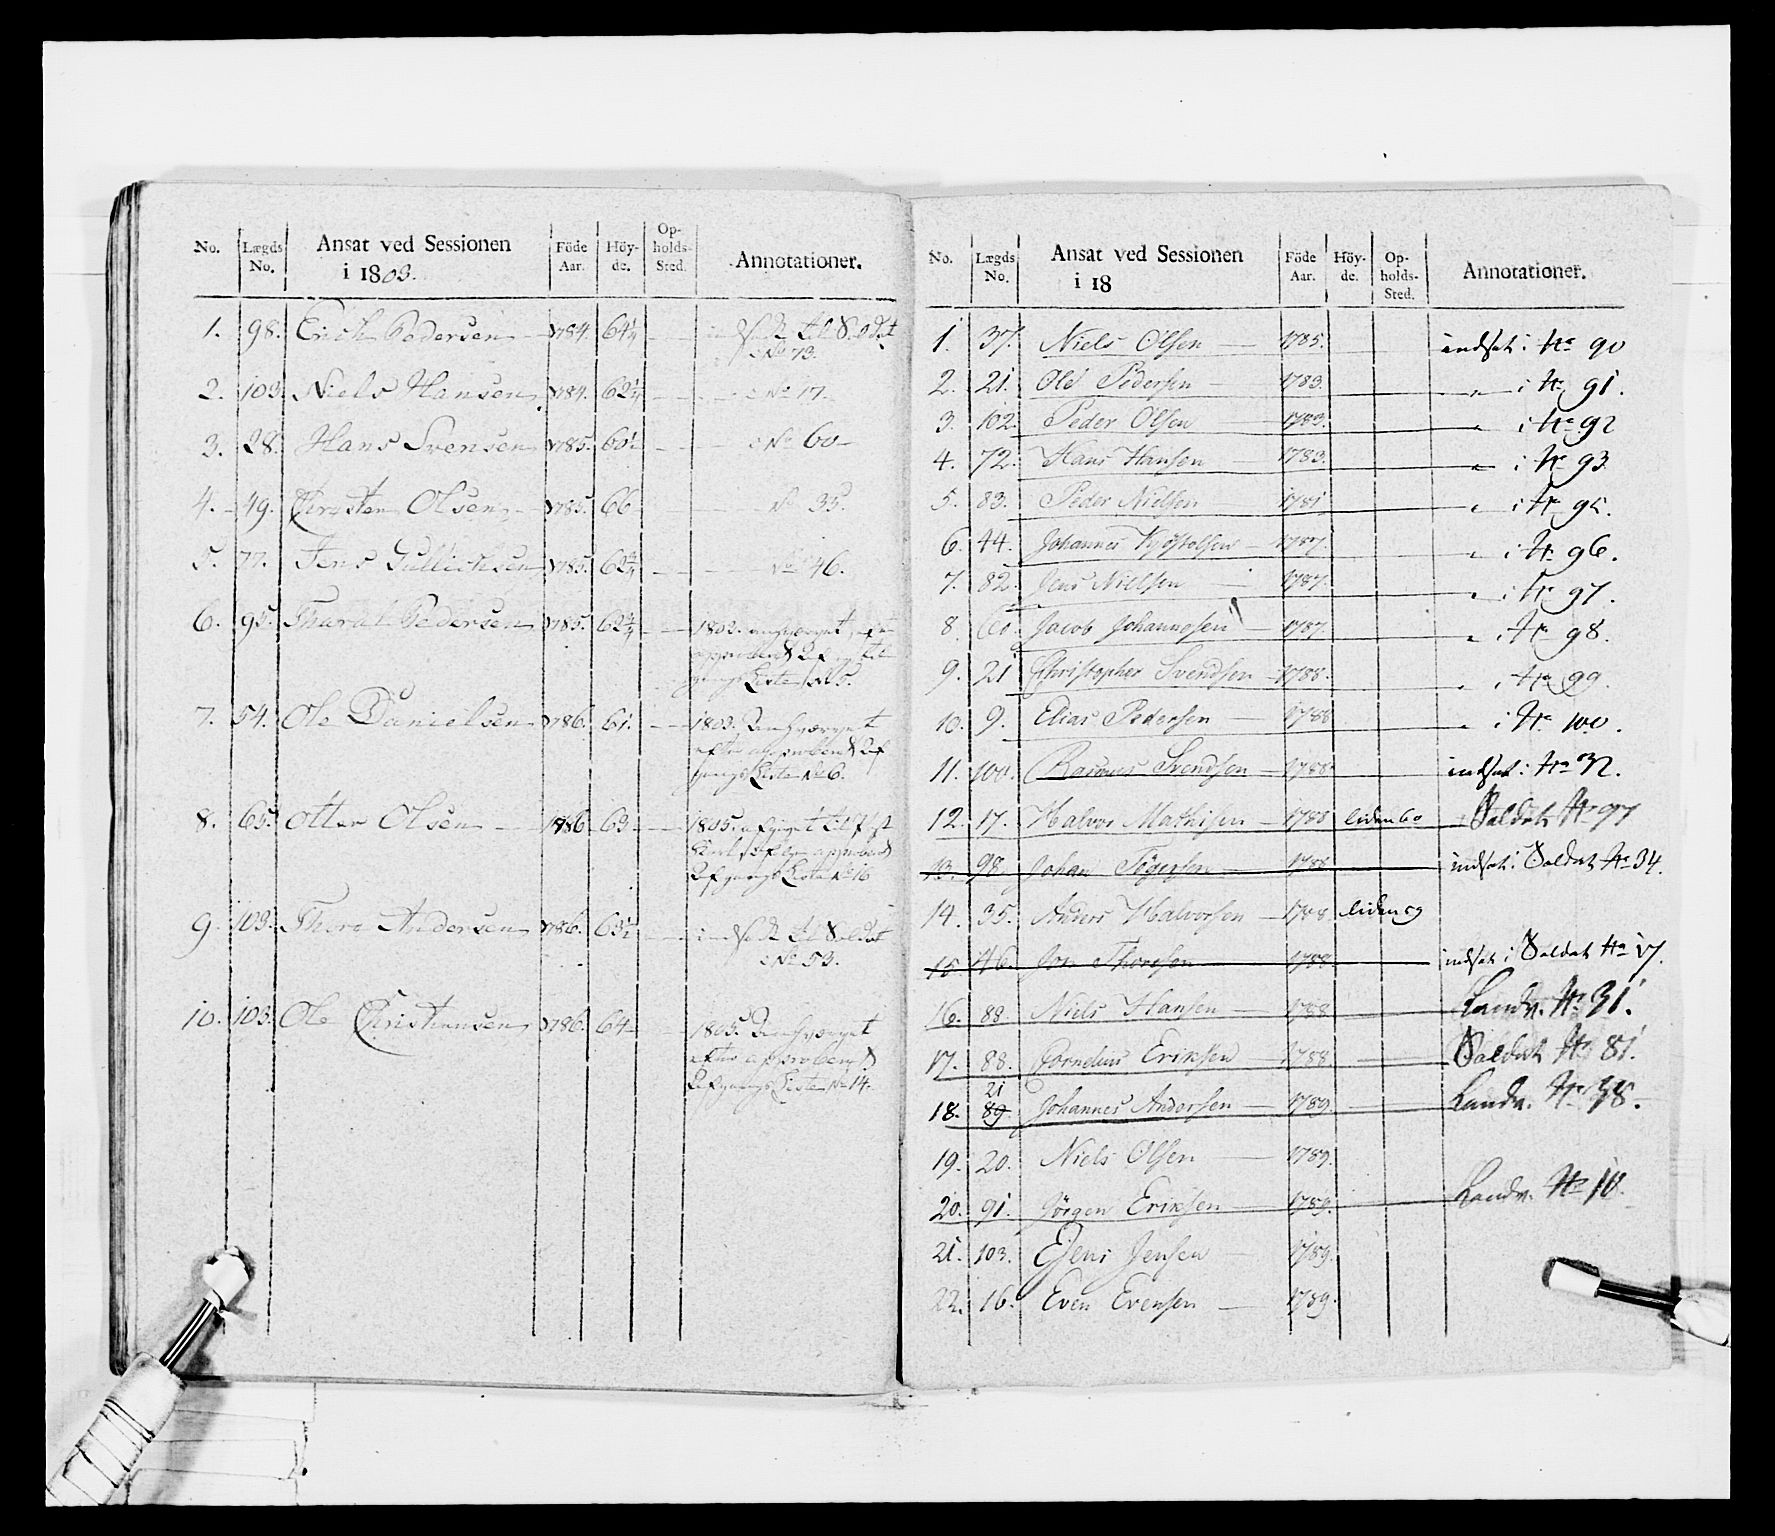 No. Lægds No. Ansat ved Sessionen i 1803. Föde Aar. Höy-de. Op-holds-Sted. Annotationer.
1. 98. Erich Pedersen 1784. 64¼ indsadt til Soldat
No 73.
2. 103. Niels Hansen 1784. 62¼ No 17.
3. 28. Hans Svensen 1785. 60½ No 60
4. 49. Christen Olsen 1785. 66 No 35.
5. 77. Jens Gullichsen 1785. 62¾ No 46.
6. 95. Tharal Pedersen 1785. 62¾ 1802.
approberet
Liste No 5.
7. 54. Ole Danielsen 1786. 61. 1803.
efter approberet Af
gangs Liste No 6.
8. 65. Otter Olsen 1786 63 1805.
approberet
Afgangs Liste No 16
9. 103. Thore Andersen 1786. 63½ indsadt til Soldat
No 53.
10. 103. Ole Christiansen 1786. 64 1805.
efter approberet
Afgangs Liste No 14.
No. Lægds No. Ansat ved Sessionen i 18 Föde Aar. Höy-de. Op-holds-Sted. Annotationer.
1. 37. Niels Olsen 1785. indsat i No 90
2. 21. Ole Pedersen 1783. " i No 91.
3. 102. Peder Olsen 1783. " i No 92
4. 72. Hans Hansen 1783. " i No 93
5. 83. Peder Nielsen 1781 " i No 95.
6. 44. Johannes Kjøstolsen 1787. " i No 96.
7. 82. Jens Nielsen 1787. " i No 97.
8. 60. Jacob Johannesen 1787. " i No 98.
9. 21 Christopher Svendsen 1788. " i No 99.
10. 9. Elias Pedersen 1788 " i No 100.
11. 100. Rasmus Svendsen 1788 indsat i No 32.
12. 17. Halvor Mathisen 1788 liden 60 Soldat No 97
13. 98. Johan 1788 indsat i Soldat No 34.
14. 35. Anders Halvorsen 1788. liden 59
15 46. Jon Thoresen 1788. indsat i Soldat No 17.
16. 88. Niels Hansen 1788 Landv. No 31.
17. 88. Cornelius Eriksen 1788 Soldat No 81.
21
18. 89. Johannes Andersen 1789. Landv. No 38.
19. 20. Niels Olsen 1789.
20. 91. Jörgen Eriksen 1789. Landv. No 10.
21. 103. Jens Jensen 1789.
22. 16. Even Evensen 1789.